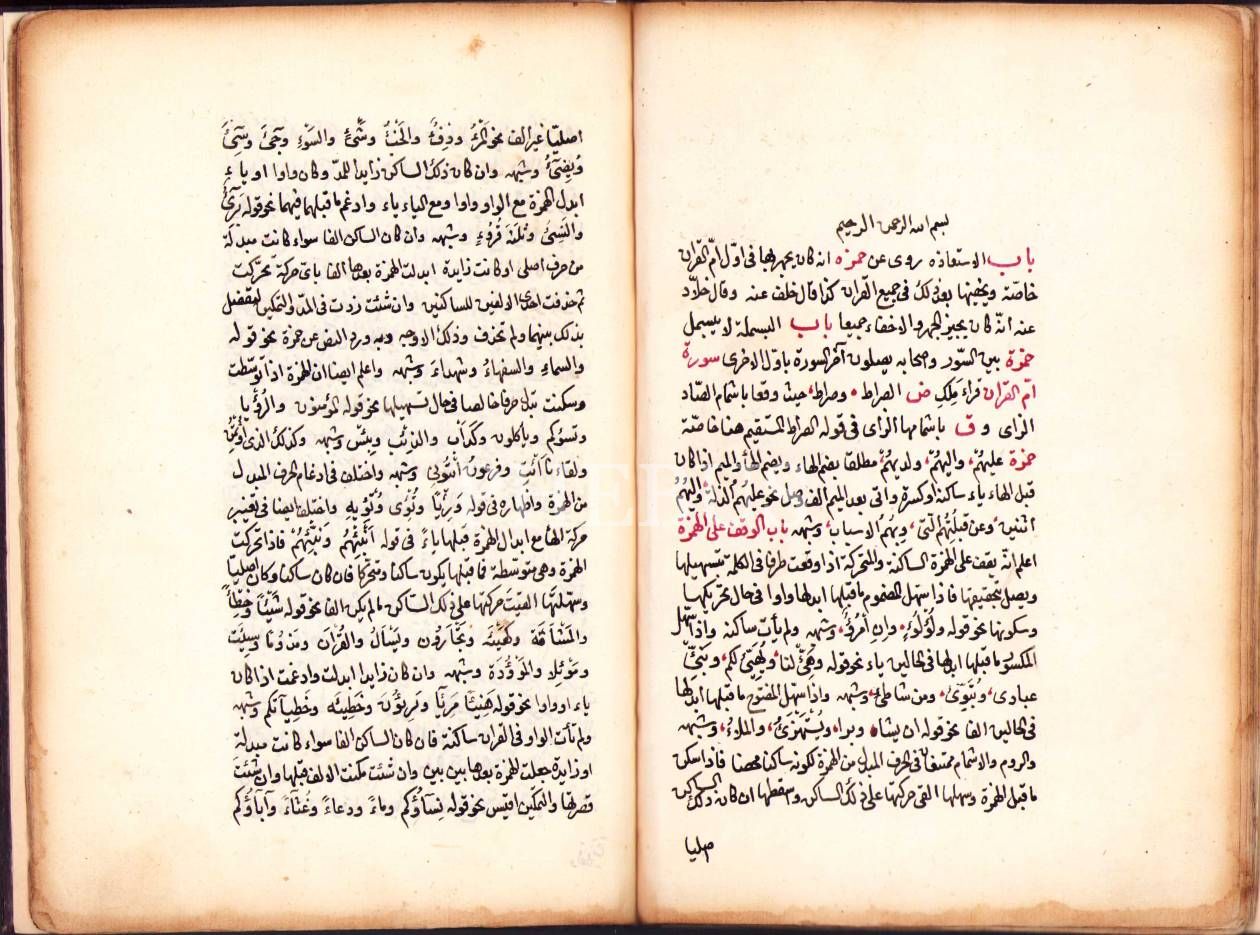 بسم الله الرحمن الرحيم
باب الاستعاذه روى عن حمزه انه كان يجهر بها فى اوّل امّ القران
خاصّة ويخفيها بعد ذلك فى جميع القران كذا قال خلف عنه وقال خلّاد
عنه انّه كان يجيز الجهر والاخفاء جميعا باب البسملة لا يبسمل
حمزة بين السّور واصحابه يصلون آخر السورة باوّل الاخرى سورة
امّ القران قراء مَلِكِ ض الصراط وصراط حيث وقعا باشمام الصّاد
الزاى و ق باشمامها الزاى فى قوله الصراط المستقيم هنا خاصّة
حمزة عليهُم واليهُم ولديهُم مطلقا بضم الهاء ويضم الهاء والميم اذا كان
قبل الهاء ياء ساكنة او كسرة واتى بعد الميم الف وصل نحو عليهُمُ الذلة واليهُمُ
اثنين وعن قبلتهُمُ الّتى وبهُمُ الاسباب وشبهه باب الوقف على الهمزة
اعلم انّه يقف على الهمزة الساكنة والمتحركة اذا وقعت طرفا فى الكلمة بتسهيلها
ويصل بتحقيقها فاذا سهل المضموم ماقبلها ابدلها واوا فى حال تحريكها
وسكونها نحو قوله ولُؤلُؤٍ وانِ امرُؤٌ وشبهه ولم يأت ساكنة واذا سهّل
المكسور ماقبلها ابدلها فى الحالين ياء نحو قوله وهَيِّئ لنا ويُهيّئ لكم ونبّئ
عبادى ويُبَوّئ ومن شاطئ وشبهه واذا سهّل المفتوح ماقبلها ابدلها
فى الحالين الفا نحو قوله ان يشاء وبدا ويُسْتَهْزَئُ والملاءُ وشبهه
والروم والاشمام ممتنعان فى الحرف المبدل من الهمزة لكونه ساكنا محضا فاذا سكن
ماقبل الهمزة وسهلها القى حركتها على ذلك الساكن وسقطها ان كان ذلك الساكن
اصليا
اصليّا غير الف نحو المرْءُ ودِفْءٌ والخَبْءُ وشَئٌ والسَوْءِ وجَىءَ وسِىٓءَ
ويُضِىٓءُ وشبهه وان كان ذلك الساكن زايدا للمدّ وكان واوا او ياء
ابدل الهمزة مع الواو واوا ومع الياء ياء وادغم ماقبلها فيهما نحو قوله بَرِىٓءٌ
والنَّسِىُ وثلثة قُرُوٓءٍ وشبهه وان كان الساكن الفا سواء كانت مبدلة
من حرف اصلى او كانت زايدة ابدلت الهمزة بعدها الفا باىّ حركة تحرّكت
ثم حذفت احدى الالفين للساكنين وان شئت زدت فى المدّ والتمكين ليفصل
بذلك بينهما ولم تحذف وذلك الاوجه وبه ورد النصّ عن حمزة نحو قوله
والسماءِ والسفهاءُ وشهداءَ وشبهه واعلم ايضا ان الهمزة اذا توسّطت
وسكنت تبدّل حرفا خالصا فى حال تسهيلها نحو قوله المؤمنون والرُّؤيا
وتسؤكم وياكلون وكَدَأبِ والذئب وبئس وشبهه وكذلك الذى اؤتمن
ولقاءنا ائت وفرعون ائتونى وشبهه واختلف فى ادغام الحرف المبدل
من الهمزة واظهاره فى قوله ورئيا وتُؤى وتُؤويه واختلف ايضا فى تغيير
حركة الهاء مع ابدال الهمزة قبلها ياءً فى قوله أنبئهُم ونَبِّئهُم فاذا تحركت
الهمزة وهى متوسّطة فما قبلها يكون ساكنا ومتحركا فان كان ساكنا وكان اصليا
وسهلتها القيت حركتها على ذلك الساكن مالم يكن الفا نحو قوله شَيئًا وخِطأً
والمَشْأمَة وكَهَيْئَة وتَجْأَرُون ويَسْألُ والقُرْآن ومَذءُوما وسيئت
ومَوْئِلا والمَوْؤُدَة وشبهه وان كان زايدا ابدلت وادغمت اذا كان
ياء او واوا نحو قوله هَنِيئًا مَرِيًّا وبَرِيئُونَ وخَطِيئَة وخطيآتكم وشبهه
ولم تأت الواو فى القران ساكنة فان كان الساكن الفا سواء كانت مبدلة
او زايدة جعلت الهمزة بعدها بين بين وان شئت مكنت الالف قبلها وان شئت
قصرتها والتمكين اقيس نحو قوله نِسآؤُكم وماءً ودعاءً وغُثآءً وآبآؤُكم